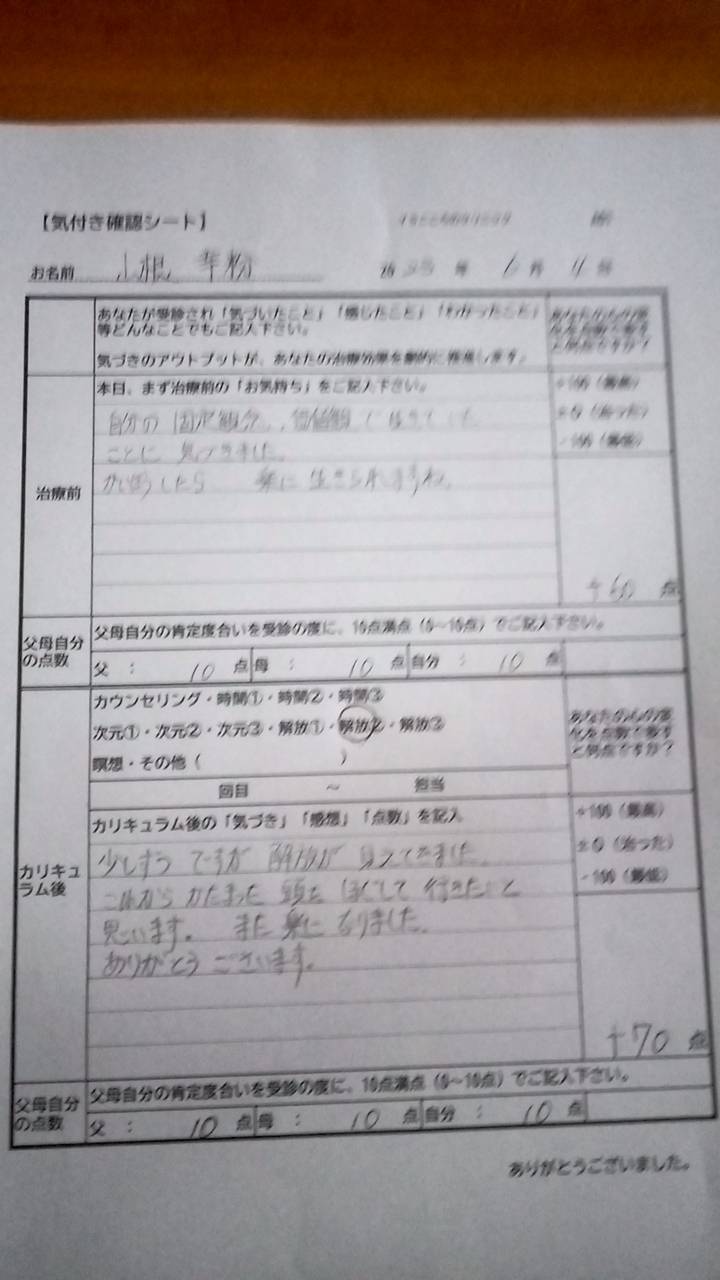 【気付き確認シート】
お名前 山根
年 6 月
あなたが受診され「気づいたこと」「感じたこと」「わかったこと」
等どんなことでもご記入下さい。
気づきのアウトプットが、あなたの治療効果を劇的に推進します。
あなたの心の変
化を点数で表す
と何点ですか？
治療前
本日、まず治療前の「お気持ち」をご記入下さい。
+100（最高）
±0（治った）
-100（最低）
自分の 固定観念、価値観
ことに 気づきました。
楽に 生きられますね。
+60 点
父母自分
の点数
父母自分の肯定度合いを受診の度に、10点満点（0～10点）でご記入下さい。
父 ： 10 点 母 ： 10 点 自分 ： 10 点
カウンセリング・時間①・時間②・時間③
次元①・次元②・次元③・解放①・解放②・解放③
瞑想・その他（ ）
回目 ～ 担当
あなたの心の変
化を点数で表す
と何点ですか？
カリキュ
ラム後
カリキュラム後の「気づき」「感想」「点数」を記入
+100（最高）
±0（治った）
-100（最低）
少しずつ ですが 解放が 見えてきました。
これから かたまった 頭を ほぐして 行きたいと
思います。 また 楽に なりました。
ありがとう ございます。
+70 点
父母自分
の点数
父母自分の肯定度合いを受診の度に、10点満点（0～10点）でご記入下さい。
父 ： 10 点 母 ： 10 点 自分 ： 10 点
ありがとうございました。